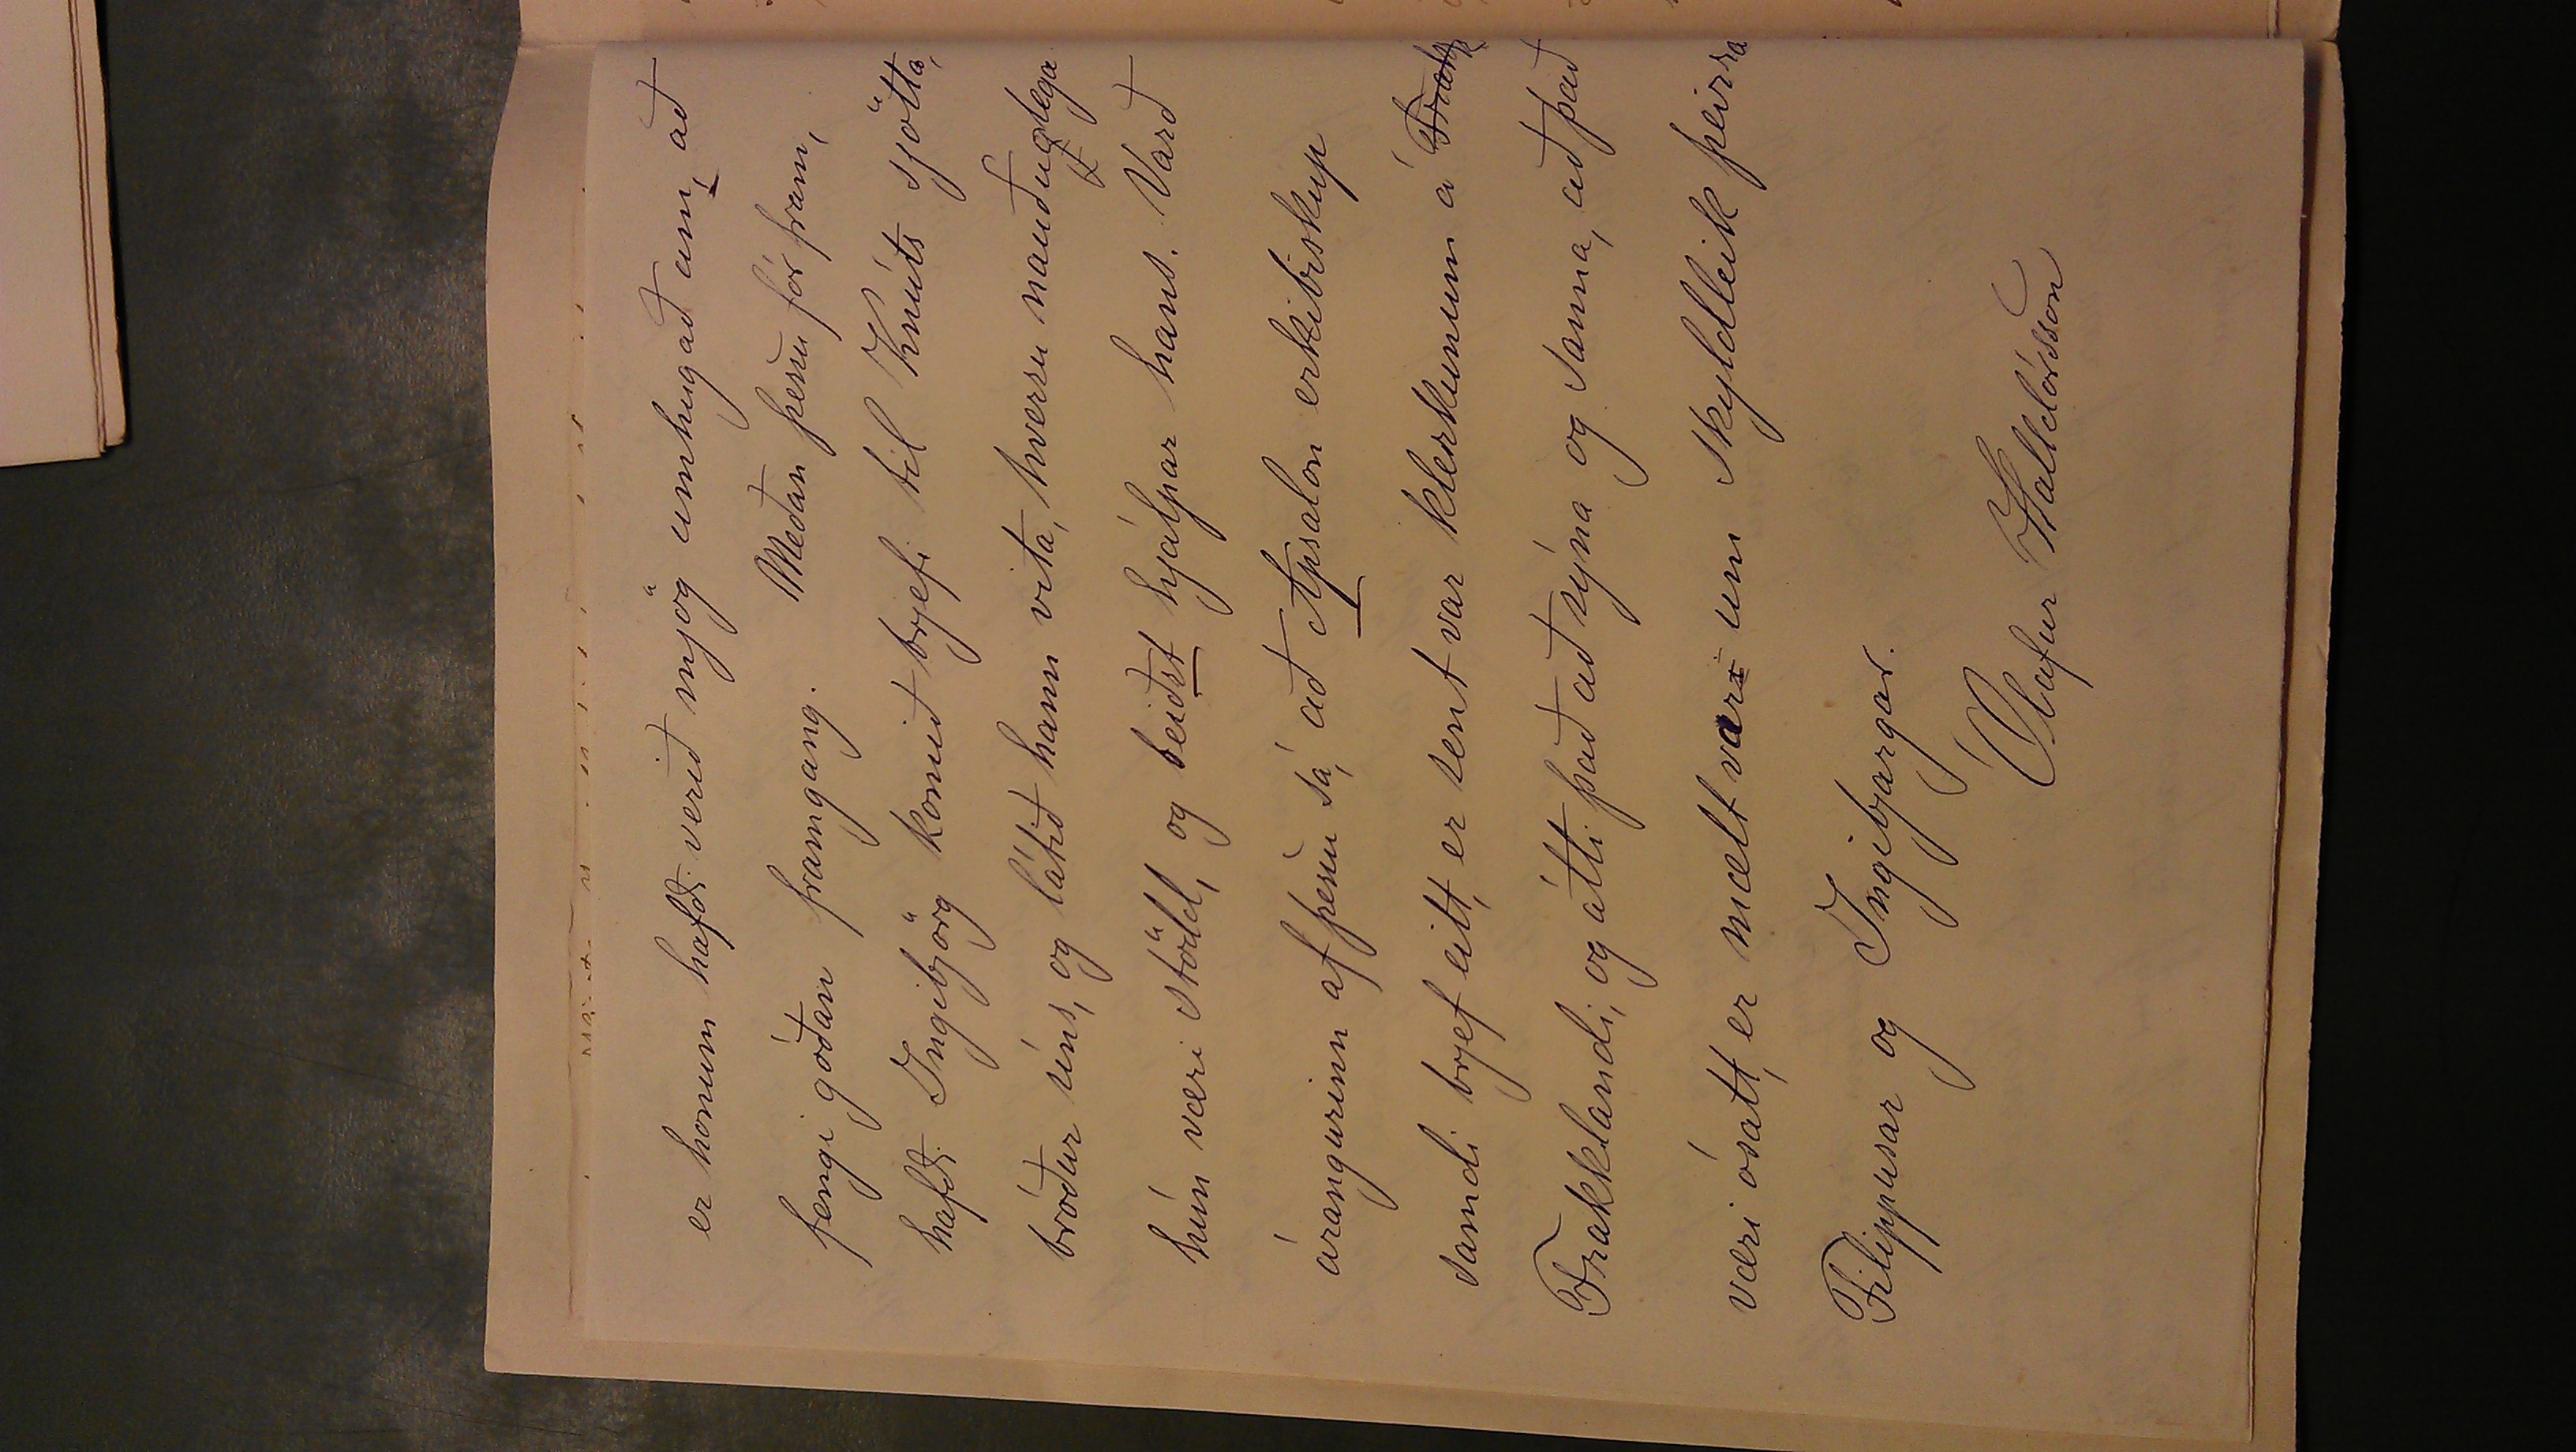 er honum hafði verið mjög umhugað um, að
fengi góðan framgang. Meðan þessu fór fram,
hafði Ingibjörg komið brjefi til Knúts sjötta,
bróður síns, og látið hann vita, hversu nauðuglega
hún væri stödd, og beiðst hjálpar hans. Varð
árangurinn af þessu sá, að Apsalon erkibiskup
samdi brjef eitt, er sent var klerkunum á Frakk
Frakklandi, og átti það að sýna og sanna, að það
væri ósatt, er mælt var um skyldleik þeirra
Filippusar og Ingibjargar.
Ólafur Halldórsson